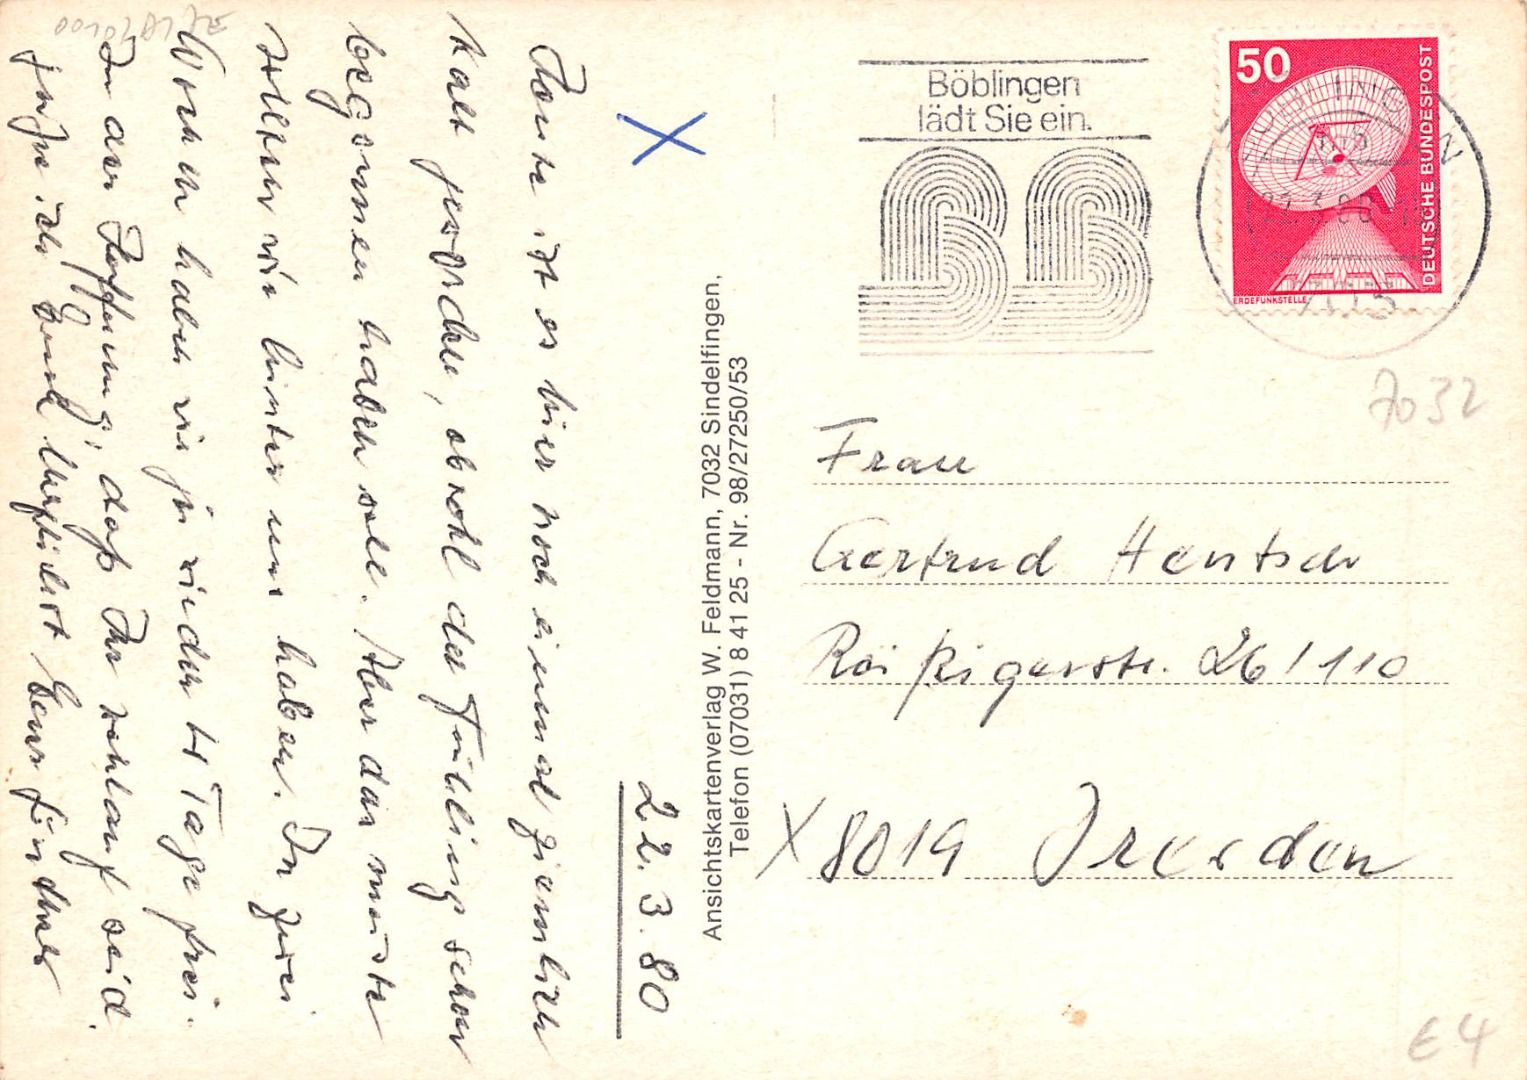 22.3.80
Heute ist es hier noch einmal ziemlich
kalt geworden, obwohl der Frühling schon
begonnen haben soll. Aber das meiste
sollten wir hinter uns haben. In zwei
Wochen haben wir ja wieder 14 Tage frei.
In der Hoffnung, daß Ihr wohlauf seid
grüße ich Euch herzlichst Euer
Ansichtskartenverlag W. Feldmann, 7032 Sindelfingen,
Telefon (07031) 8 41 25 - Nr. 98/27250/53
Böblingen
lädt Sie ein.
BB
50
DEUTSCHE BUNDESPOST
ERDEFUNKSTELLE
7032
Frau
Gertrud Hentsch
26/110
X 8019 Dresden
€ 4